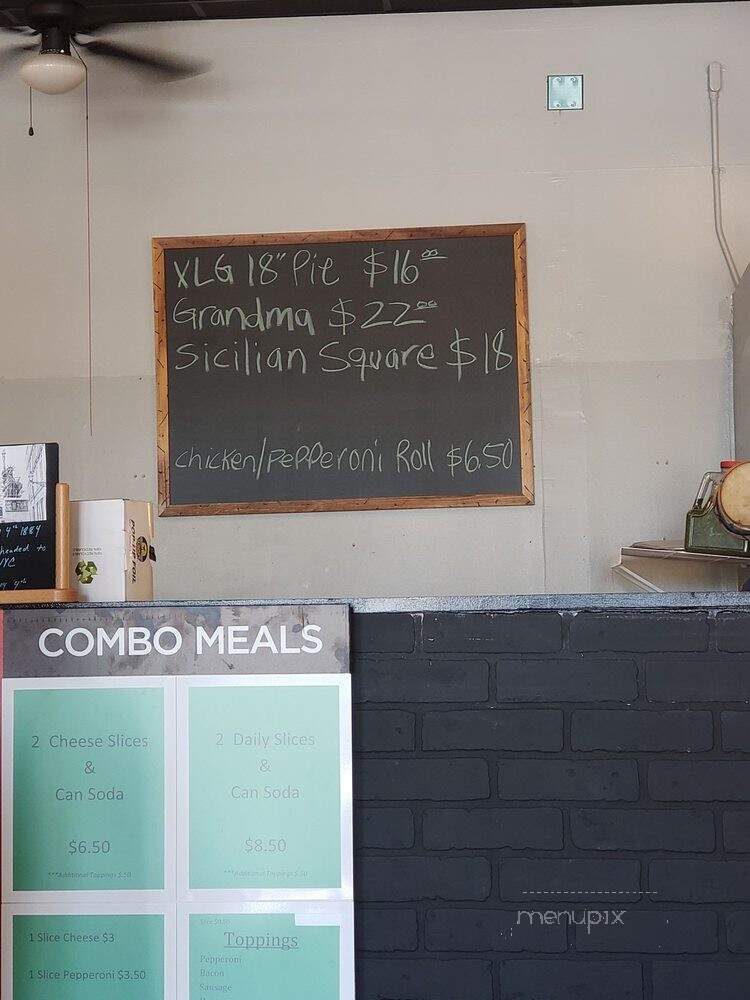 XLG 18" Pie $16.00
Grandma $22.00
Sicilian Square $18
chicken/pepperoni Roll $6.50
4th 1884
headed to
NYC
4th
POP-UP FOIL
COMBO MEALS
2 Cheese Slices
&
Can Soda
$6.50
***Additional Toppings $.50
2 Daily Slices
&
Can Soda
$8.50
***Additional Toppings $.50
1 Slice Cheese $3
1 Slice Pepperoni $3.50
Toppings
Pepperoni
Bacon
Sausage
menupix